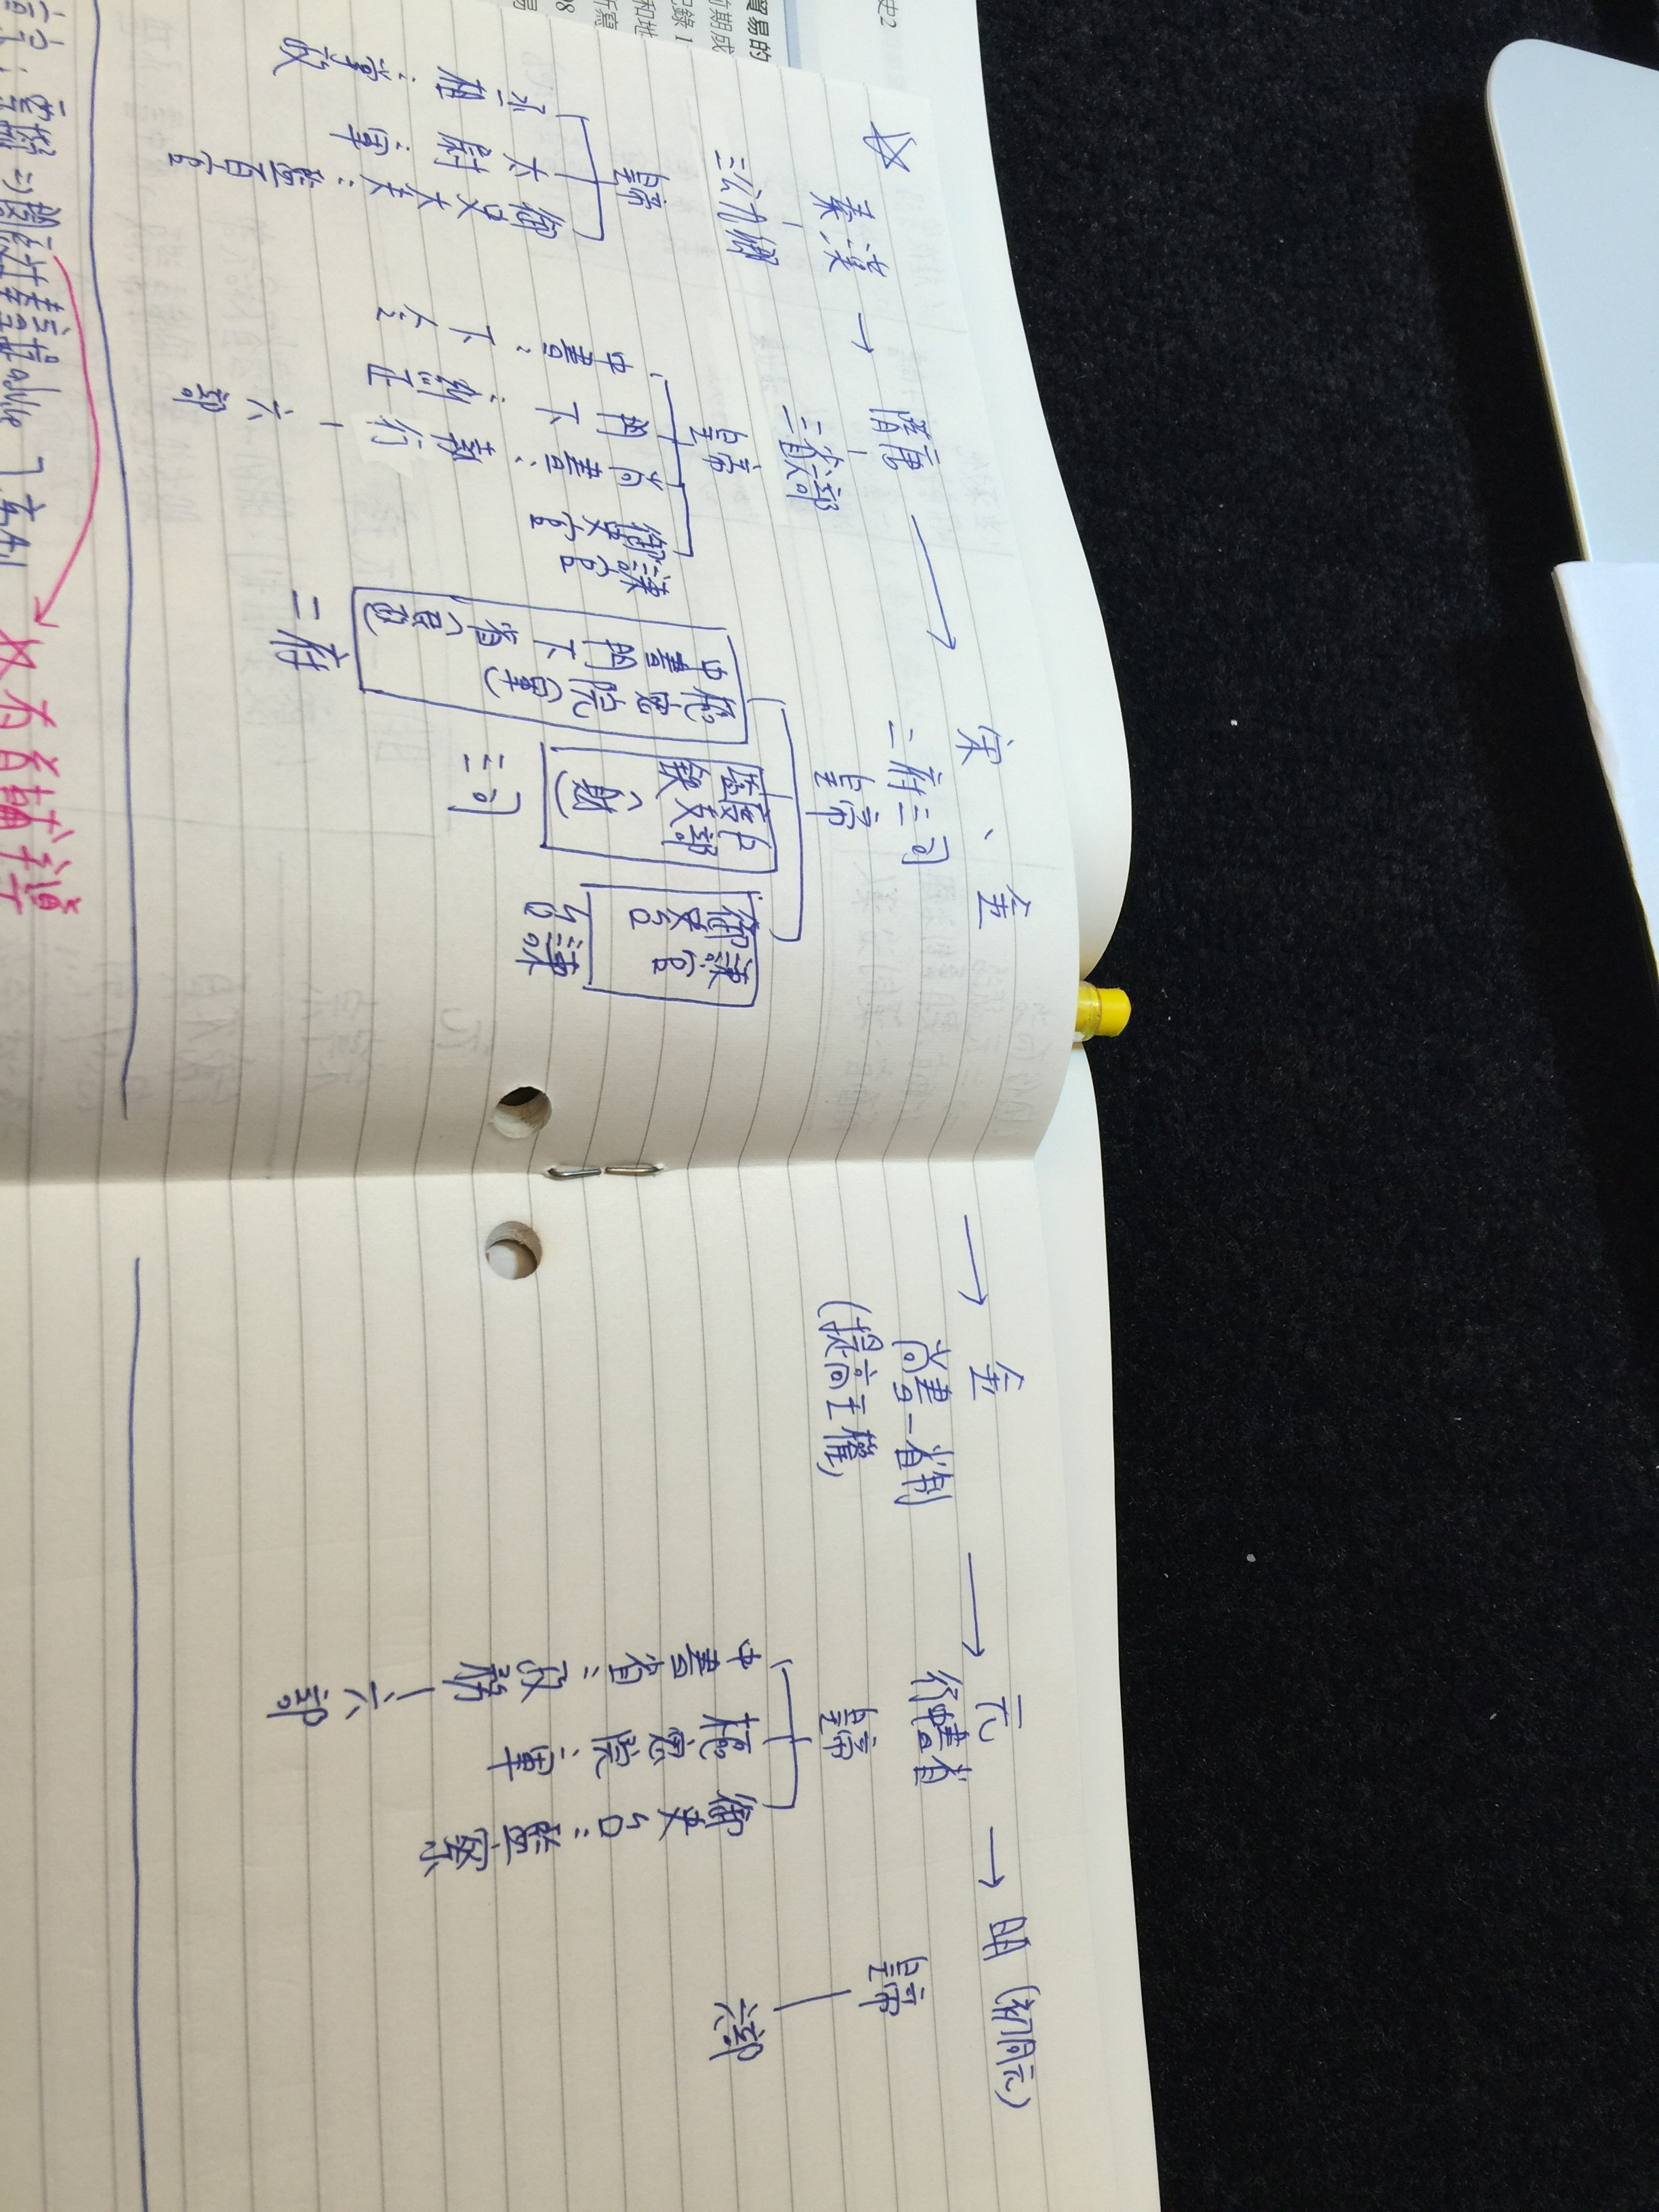 史2
貿易的
☆ 秦漢 → 隋唐 → 宋、金 → 金 → 元 → 明(初同元)
三公九卿
皇帝
丞相:掌政
太尉:軍
御史大夫:監百官
三省六部
皇帝
中書:下令
門下:糾正
尚書:執行-六部
御史台
諫官
二府三司
皇帝
中書門下省(民政)
樞密院(軍)
二府
鹽鐵
度支
戶部
(財)
三司
御史台
諫官
台諫
尚書一省制
(提高主權)
行中書省
皇帝
中書省:政務-六部
樞密院:軍
御史台:監察
皇帝
六部